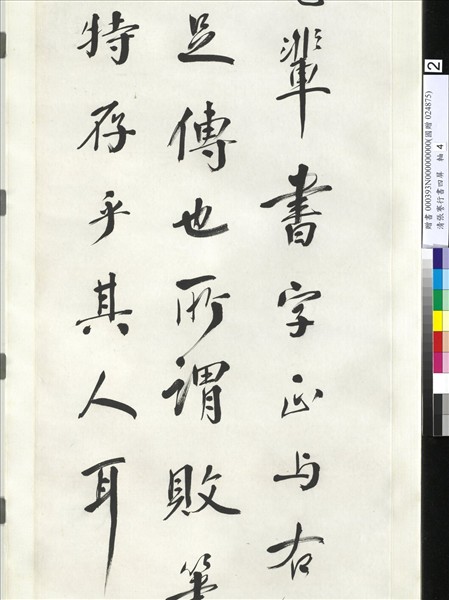 輩書字正与右
足傳也所謂敗筆
特存乎其人耳
2
贈書 000393N000000000(國贈 024875)
清張謇行書四屏 軸 4